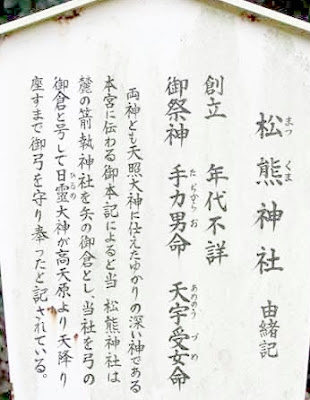 松熊神社 由緒記
まつ くま
創立 年代不詳
御祭神 手力男命 天宇受女命
たぢからお あめのう づめ
両神とも天照大神に仕えたゆかりの深い神である
本宮に伝わる御本記によると当 松熊神社は
麓の箭執神社を矢の御倉とし、当社を弓の
御倉と号して日霊大神が高天原より天降り
ひるめ
座すまで御弓を守り奉ったと記されている。